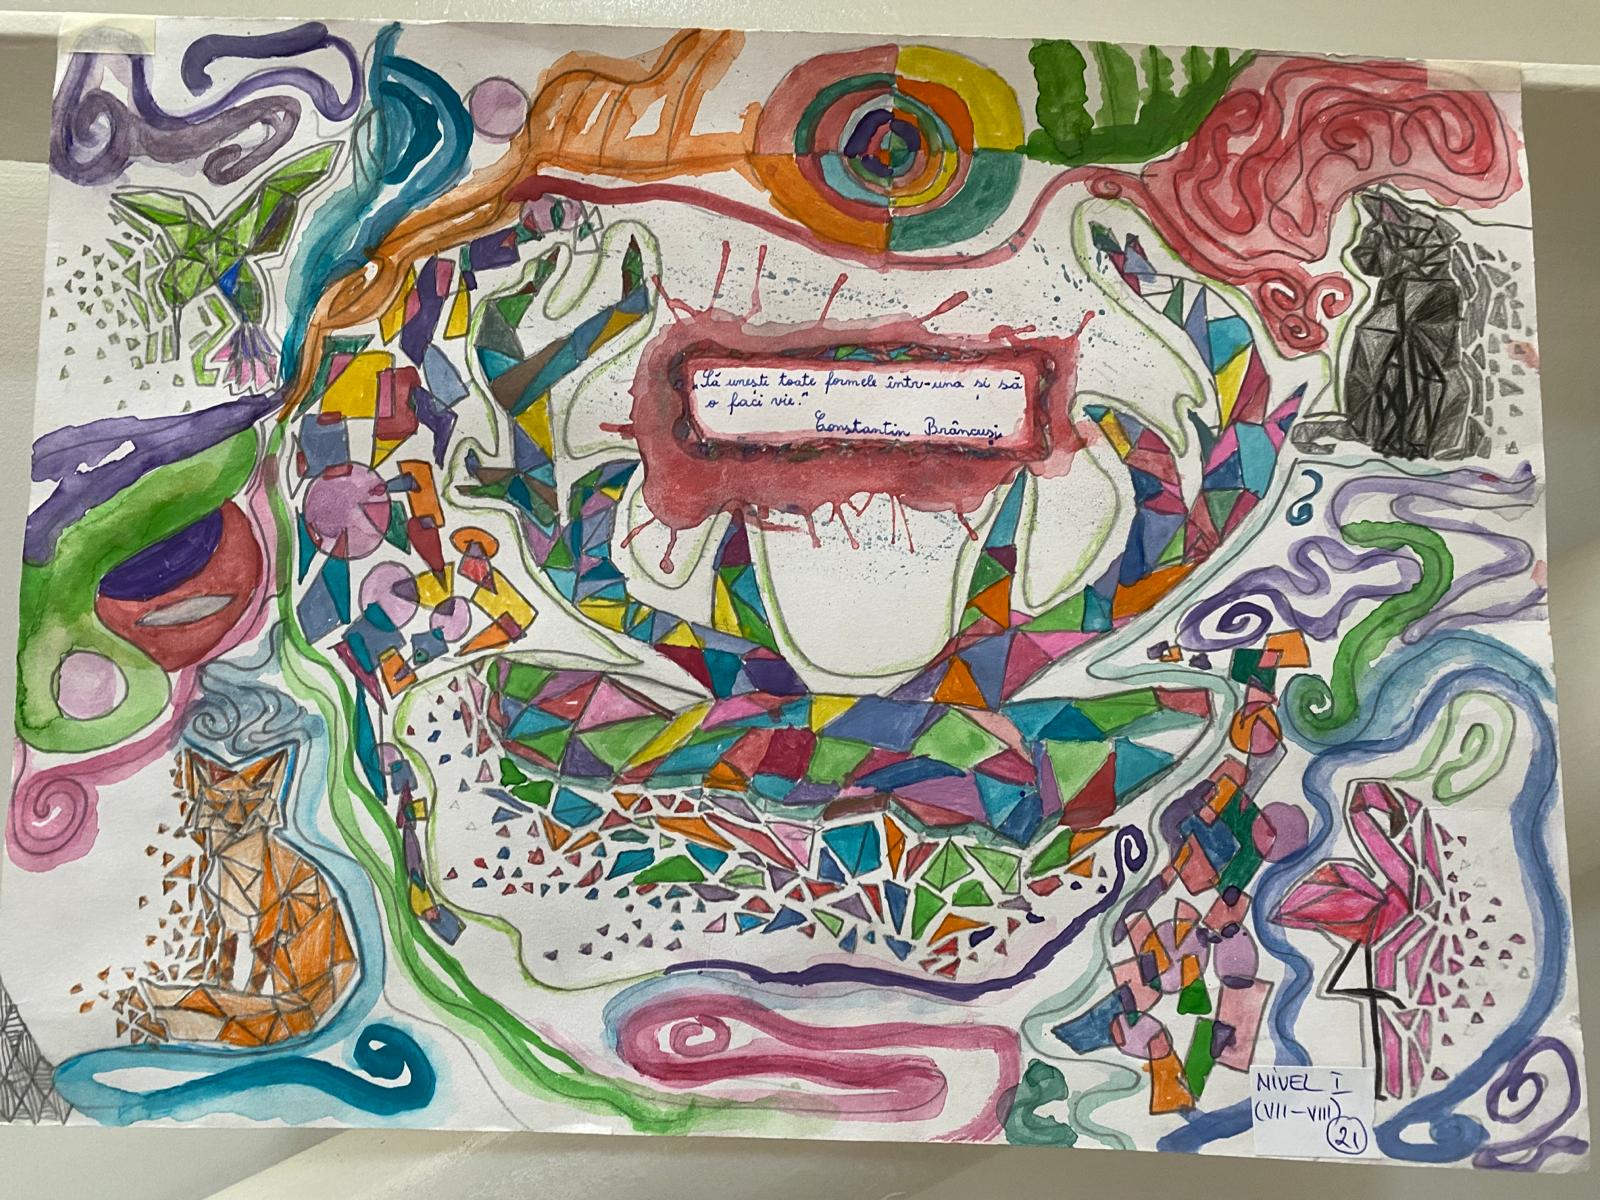 „Să unești toate formele într-una și să
o faci vie."
Constantin Brâncuși
NIVEL I
(VII-VIII)
21